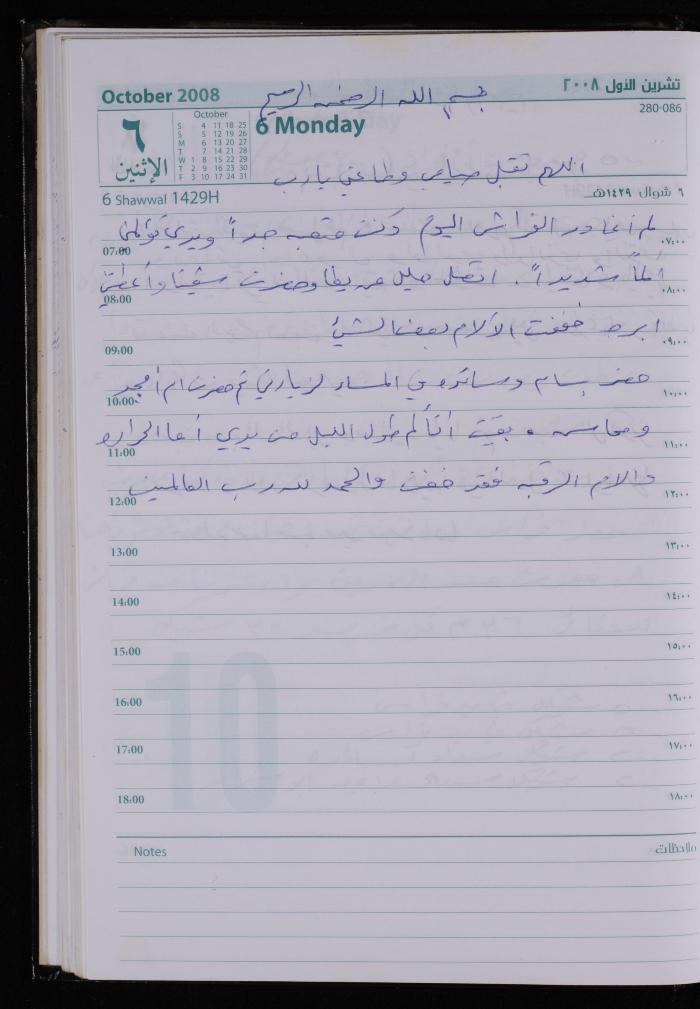 October 2008
بسم الله الرحمن الرحيم
تشرين الأول ٢٠٠٨
280-086
October
S 4 11 18 25
S 5 12 19 26
M 6 13 20 27
T 7 14 21 28
W 1 8 15 22 29
T 2 9 16 23 30
F 3 10 17 24 31
٦
الإثنين
6 Monday
اللهم تقبل صيامي وطاعتي يا رب
6 Shawwal 1429H
٦ شوال ١٤٢٩هـ
لم أغادر الفراش اليوم وكنت متعبه جداً ويدي تؤلمني
07:00 ٠٧:٠٠
ألماً شديداً. اتصل خليل وحضرت وأعطتني
08:00 ٠٨:٠٠
ابره خففت الآلام بعض الشيئ
09:00 ٠٩:٠٠
حضر بسام وسائده في المساء لزيارتي ثم حضرت ام أمجد
10:00 ١٠:٠٠
ومحاسن . بقيت أتألم طول الليل من يدي أما الحراره
11:00 ١١:٠٠
والام الرقبه فقد خفت والحمد لله رب العالمين
12:00 ١٢:٠٠
13:00 ١٣:٠٠
14:00 ١٤:٠٠
15:00 ١٥:٠٠
16:00 ١٦:٠٠
17:00 ١٧:٠٠
18:00 ١٨:٠٠
10
Notes ملاحظات